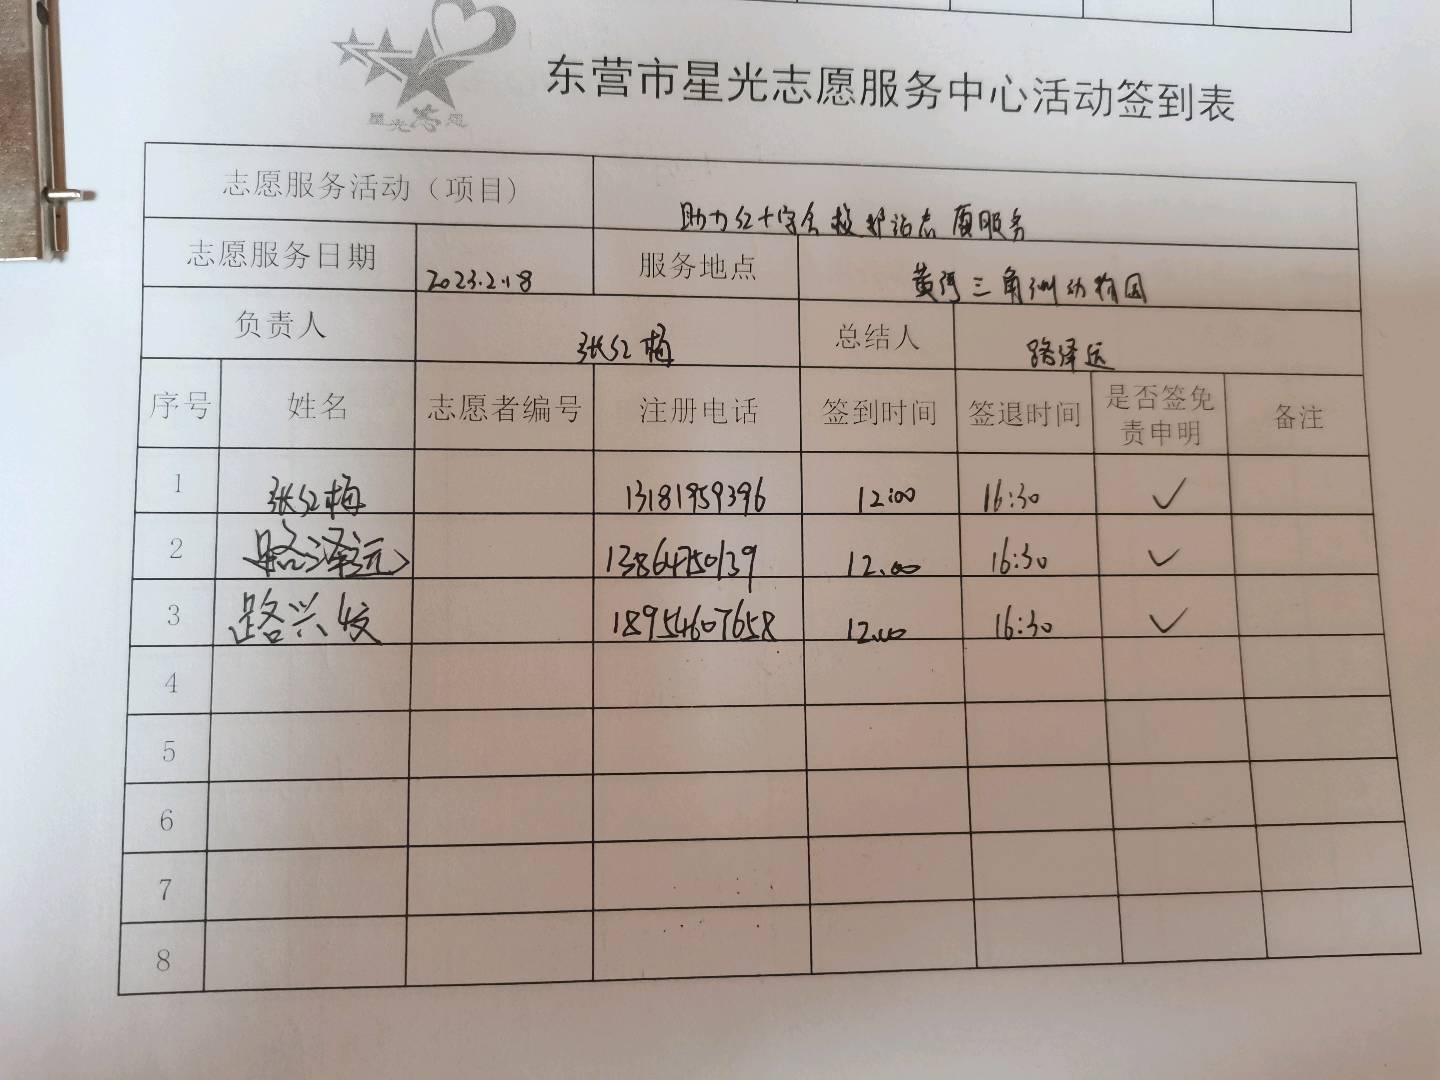 星光志愿
东营市星光志愿服务中心活动签到表
志愿服务活动（项目） 助力红十字会救护站志愿服务
志愿服务日期 2023.2.18 服务地点 黄河三角洲动物园
负责人 张红梅 总结人 路泽远
序号 姓名 志愿者编号 注册电话 签到时间 签退时间 是否签免责申明 备注
1 张红梅 13181959396 12:00 16:30 ✓
2 路泽远 13864750139 12:00 16:30 ✓
3 路兴 18954607658 12:00 16:30 ✓
4
5
6
7
8